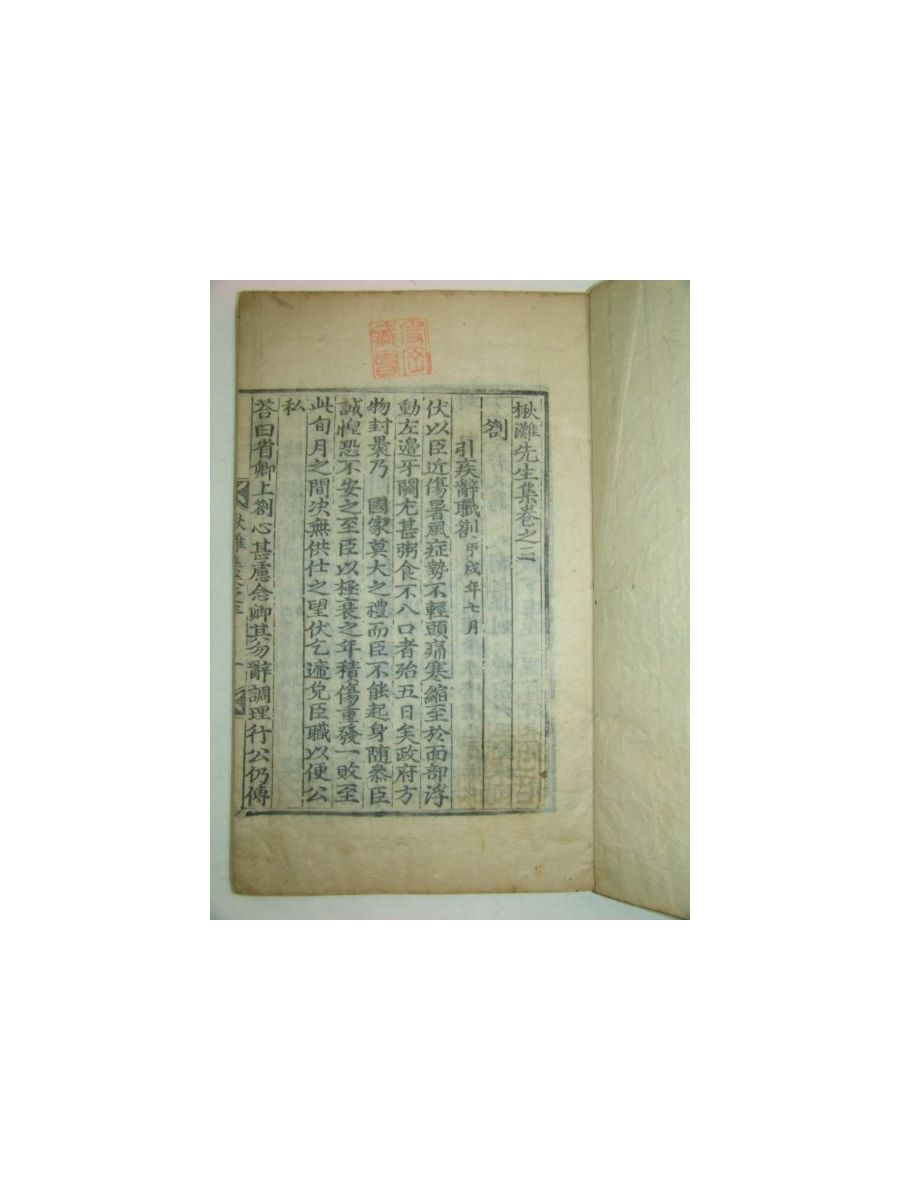 楸灘先生集卷之三
劄
引疾辭職劄 甲戌年七月
伏以臣近傷暑風症勢不輕頭痛寒縮至於面部浮
動左邊牙關尤甚粥食不入口者殆五日矣政府方
物封裹乃 國家莫大之禮而臣不能起身随叅臣
誠惶恐不安之至臣以極衰之年積傷重發一敗至
此旬月之間决無供仕之望伏乞遞免臣職以便公
私
荅曰省卿上劄心甚慮念卿其勿辭調理行公仍傳
藏書